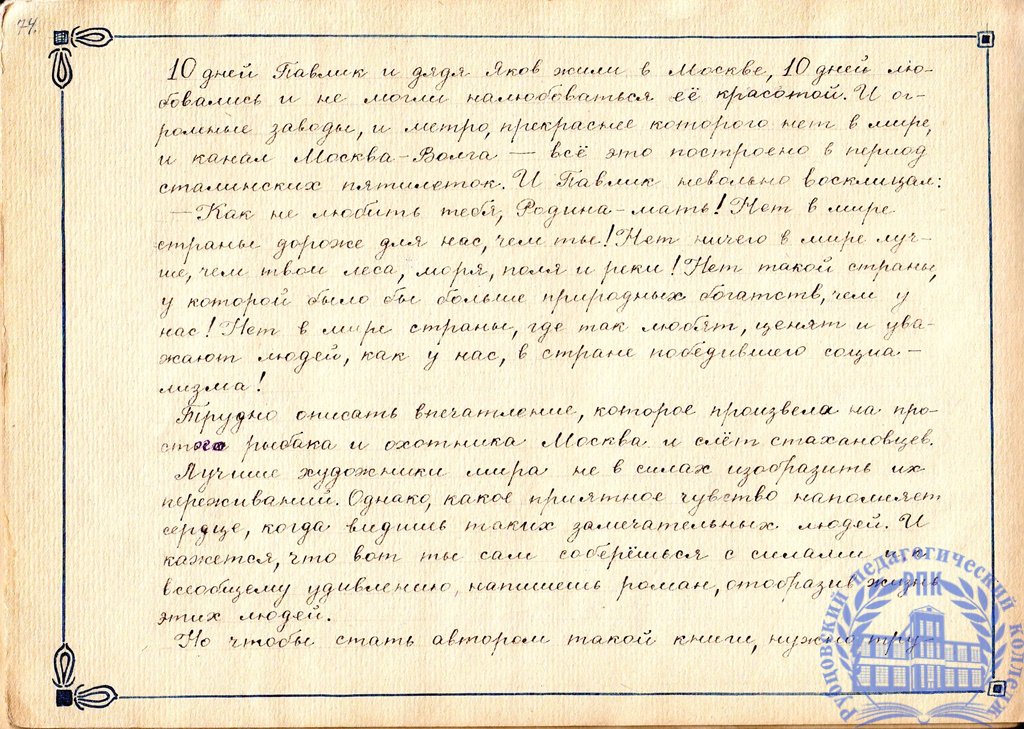 74.
10 дней Павлик и дядя Яков жили в Москве, 10 дней лю-
бовались и не могли налюбоваться её красотой. И ог-
ромные заводы, и метро, прекраснее которого нет в мире,
и канал Москва-Волга — всё это построено в период
сталинских пятилеток. И Павлик невольно восклицал:
— Как не любить тебя, Родина-мать! Нет в мире
страны дороже для нас, чем ты! Нет ничего в мире луч-
ше, чем твои леса, моря, поля и реки! Нет такой страны,
у которой было бы больше природных богатств, чем у
нас! Нет в мире страны, где так любят, ценят и ува-
жают людей, как у нас, в стране победившего социа-
лизма!
Трудно описать впечатление, которое произвела на про-
стого рыбака и охотника Москва и слёт стахановцев.
Лучшие художники мира не в силах изобразить их
переживаний. Однако, какое приятное чувство наполняет
сердце, когда видишь таких замечательных людей. И
кажется, что вот ты сам соберёшься с силами и к
всеобщему удивлению, напишешь роман, отобразив жизнь
этих людей.
Но чтобы стать автором такой книги, нужно тру-
Рубцовский педагогический колледж
РПК